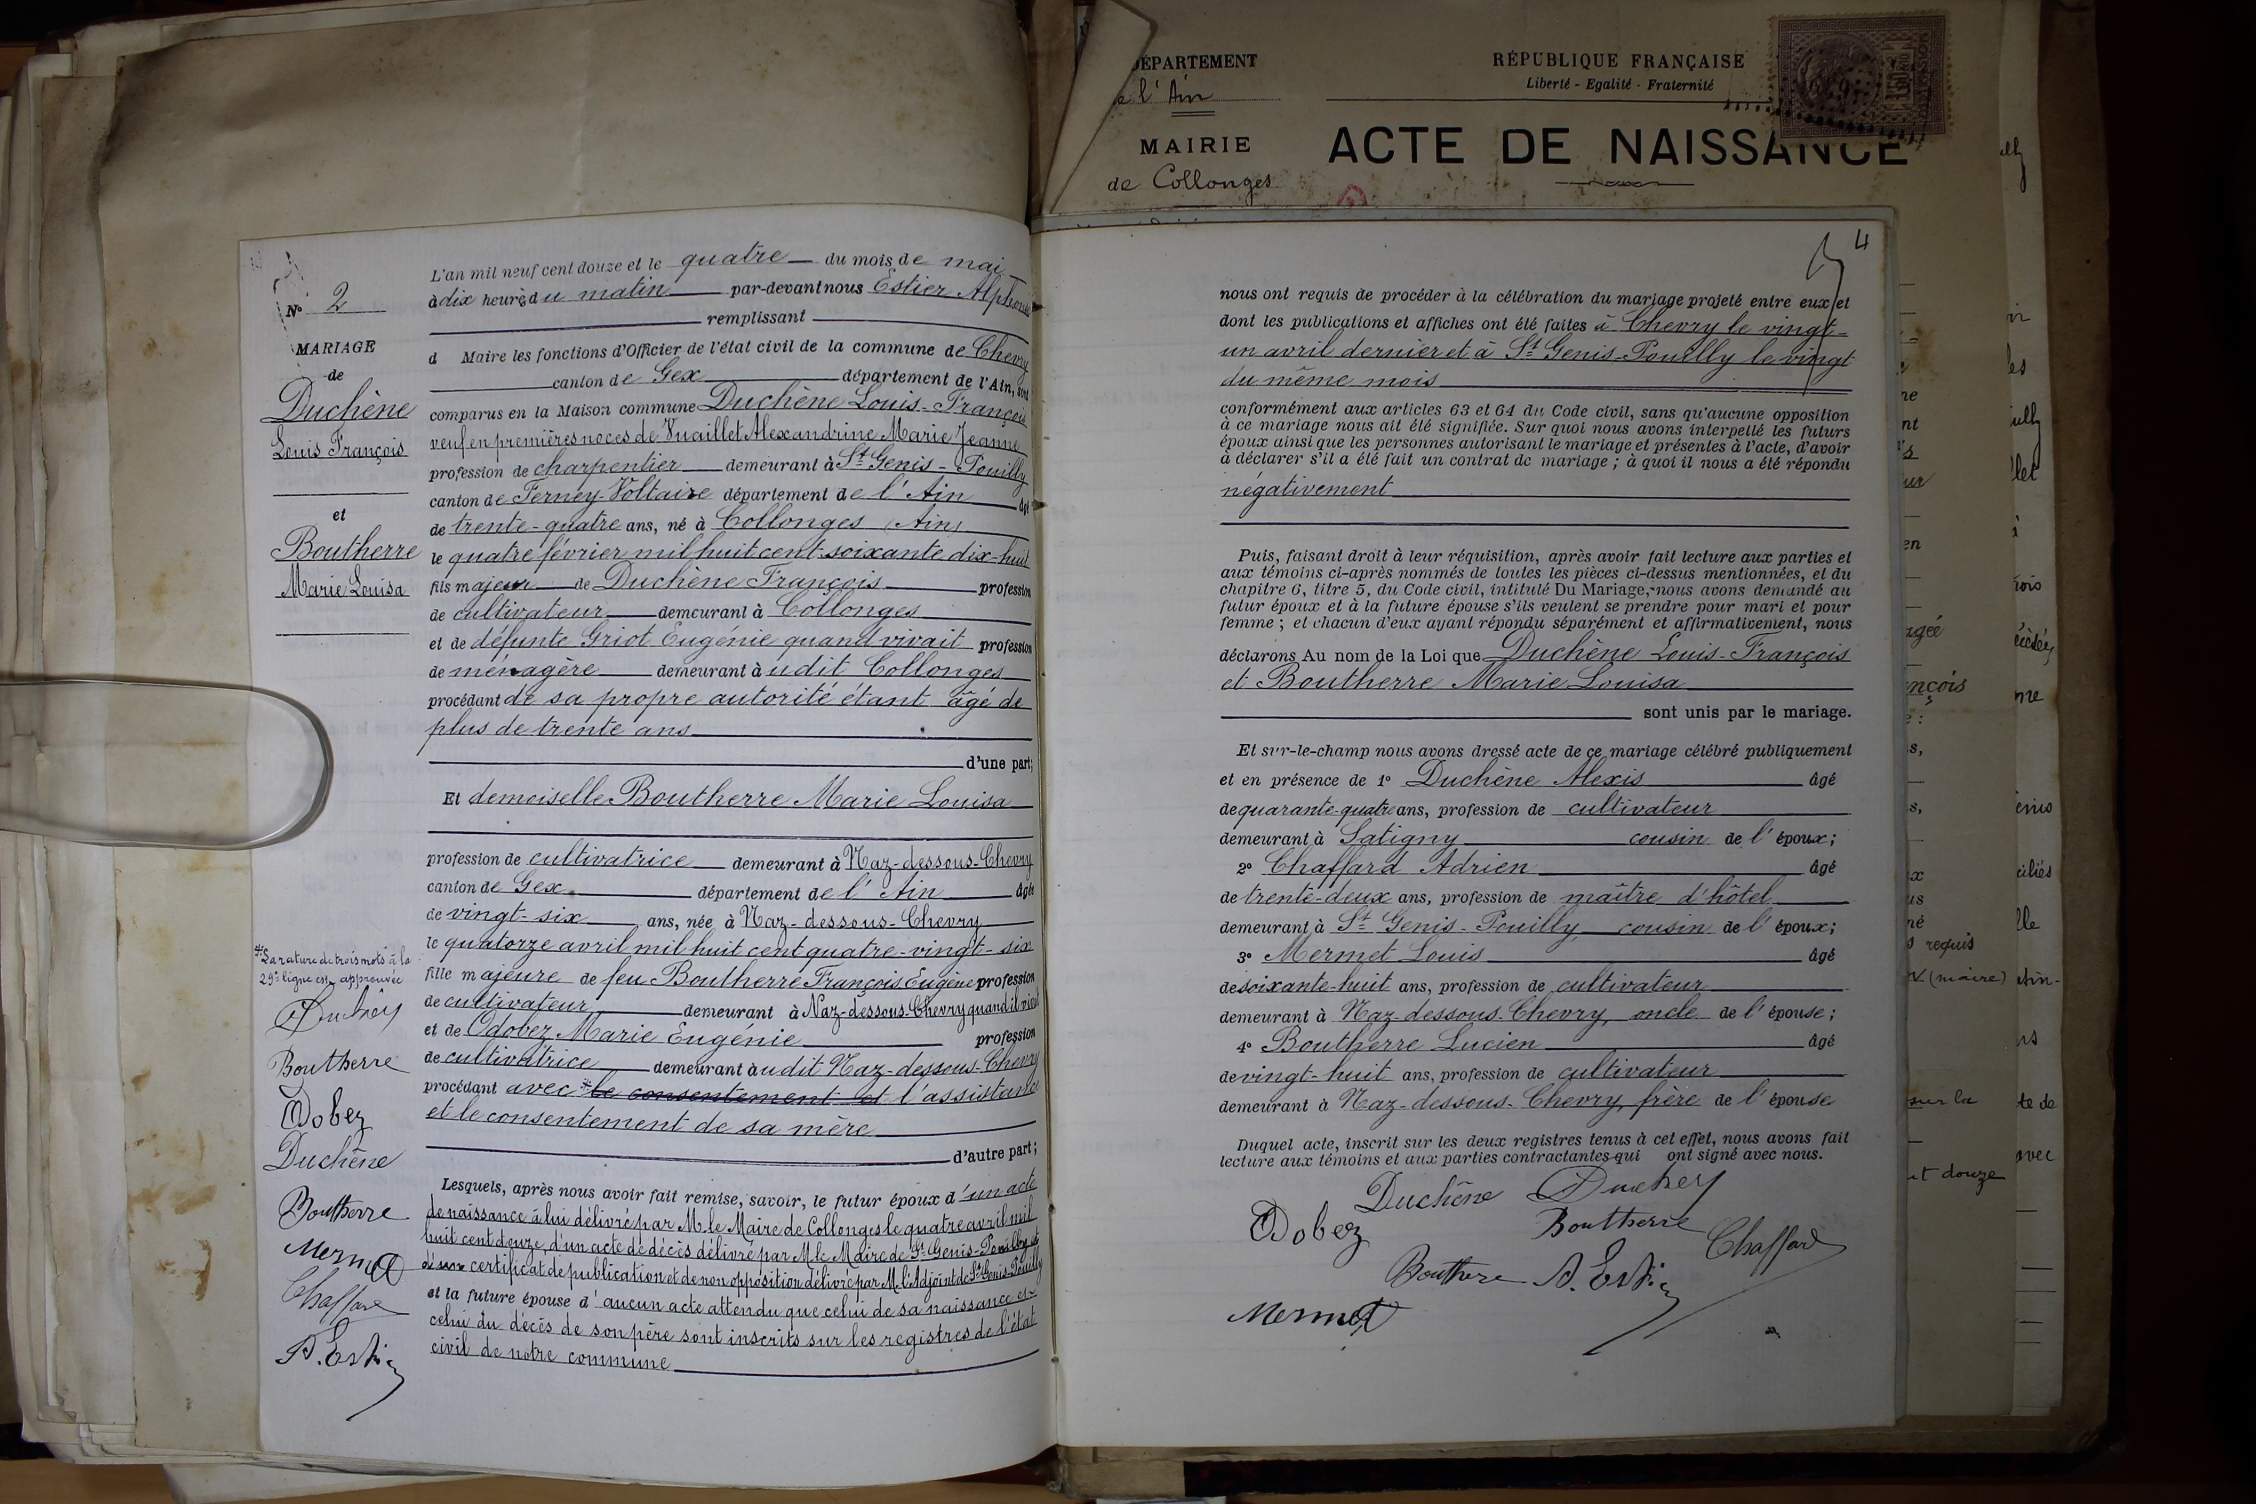 N° 2
MARIAGE
de
Duchêne
Louis François
et
Boutherre
Marie Louisa
L'an mil neuf cent douze et le quatre du mois de mai
à dix heures du matin par-devant nous Estier Alphonse
remplissant
d Maire les fonctions d'Officier de l'état civil de la commune de Chevry
canton de Gex département de l'Ain, sont
comparus en la Maison commune Duchène Louis-François
veuf en premières noces de Vuaillet Alexandrine Marie Jeanne
profession de charpentier demeurant à St Genis-Pouilly
canton de Ferney-Voltaire département de l'Ain âgé
de trente-quatre ans, né à Collonges (Ain)
le quatre février mil huit cent soixante dix-huit
fils majeur de Duchène François profession
de cultivateur demeurant à Collonges
et de défunte Griot Eugénie quand vivait profession
de ménagère demeurant à udit Collonges
procédant de sa propre autorité étant âgé de
plus de trente ans
d'une part;
Et demoiselle Boutherre Marie Louisa
profession de cultivatrice demeurant à Naz-dessous-Chevry
canton de Gex département de l'Ain âgée
de vingt-six ans, née à Naz-dessous-Chevry
le quatorze avril mil huit cent quatre-vingt-six
fille majeure de feu Boutherre François Eugène profession
de cultivateur demeurant à Naz-dessous-Chevry quand il vivait
et de Odobez Marie Eugénie profession
de cultivatrice demeurant à udit Naz-dessous-Chevry
procédant avec * le consentement et l'assistance
et le consentement de sa mère
d'autre part;
Lesquels, après nous avoir fait remise, savoir, le futur époux d'un acte
de naissance à lui délivré par M. le Maire de Collonges le quatre avril mil
huit cent douze, d'un acte de décès délivré par M. le Maire de St Genis-Pouilly et
d'un certificat de publication et de non opposition délivré par M. l'Adjoint de St Genis-Pouilly
et la future épouse d'aucun acte attendu que celui de sa naissance et
celui du décès de son père sont inscrits sur les registres de l'état
civil de notre commune
* La rature de trois mots à la
29e ligne est approuvée
Boutherre
Odobez
Duchêne
Boutherre
Mermet
Chaffard
A. Estier
DÉPARTEMENT
de l'Ain
MAIRIE
de Collonges
RÉPUBLIQUE FRANÇAISE
Liberté - Egalité - Fraternité
ACTE DE NAISSANCE
4
nous ont requis de procéder à la célébration du mariage projeté entre eux et
dont les publications et affiches ont été faites à Chevry le vingt-
un avril dernier et à St Genis-Pouilly le vingt
du même mois
conformément aux articles 63 et 64 du Code civil, sans qu'aucune opposition
à ce mariage nous ait été signifiée. Sur quoi nous avons interpellé les futurs
époux ainsi que les personnes autorisant le mariage et présentes à l'acte, d'avoir
à déclarer s'il a été fait un contrat de mariage; à quoi il nous a été répondu
négativement
Puis, faisant droit à leur réquisition, après avoir fait lecture aux parties et
aux témoins ci-après nommés de toutes les pièces ci-dessus mentionnées, et du
chapitre 6, titre 5, du Code civil, intitulé Du Mariage, nous avons demandé au
futur époux et à la future épouse s'ils veulent se prendre pour mari et pour
femme; et chacun d'eux ayant répondu séparément et affirmativement, nous
déclarons Au nom de la Loi que Duchène Louis-François
et Boutherre Marie Louisa
sont unis par le mariage.
Et sur-le-champ nous avons dressé acte de ce mariage célébré publiquement
et en présence de 1° Duchène Alexis âgé
de quarante-quatre ans, profession de cultivateur
demeurant à Satigny cousin de l'époux;
2° Chaffard Adrien âgé
de trente-deux ans, profession de maître d'hôtel
demeurant à St Genis-Pouilly cousin de l'époux;
3° Mermet Louis âgé
de soixante-huit ans, profession de cultivateur
demeurant à Naz-dessous-Chevry, oncle de l'épouse;
4° Boutherre Lucien âgé
de vingt-huit ans, profession de cultivateur
demeurant à Naz-dessous-Chevry, frère de l'épouse
Duquel acte, inscrit sur les deux registres tenus à cet effet, nous avons fait
lecture aux témoins et aux parties contractantes qui ont signé avec nous.
Duchêne
Odobez Boutherre Chaffard
Boutherre A. Estier
Mermet